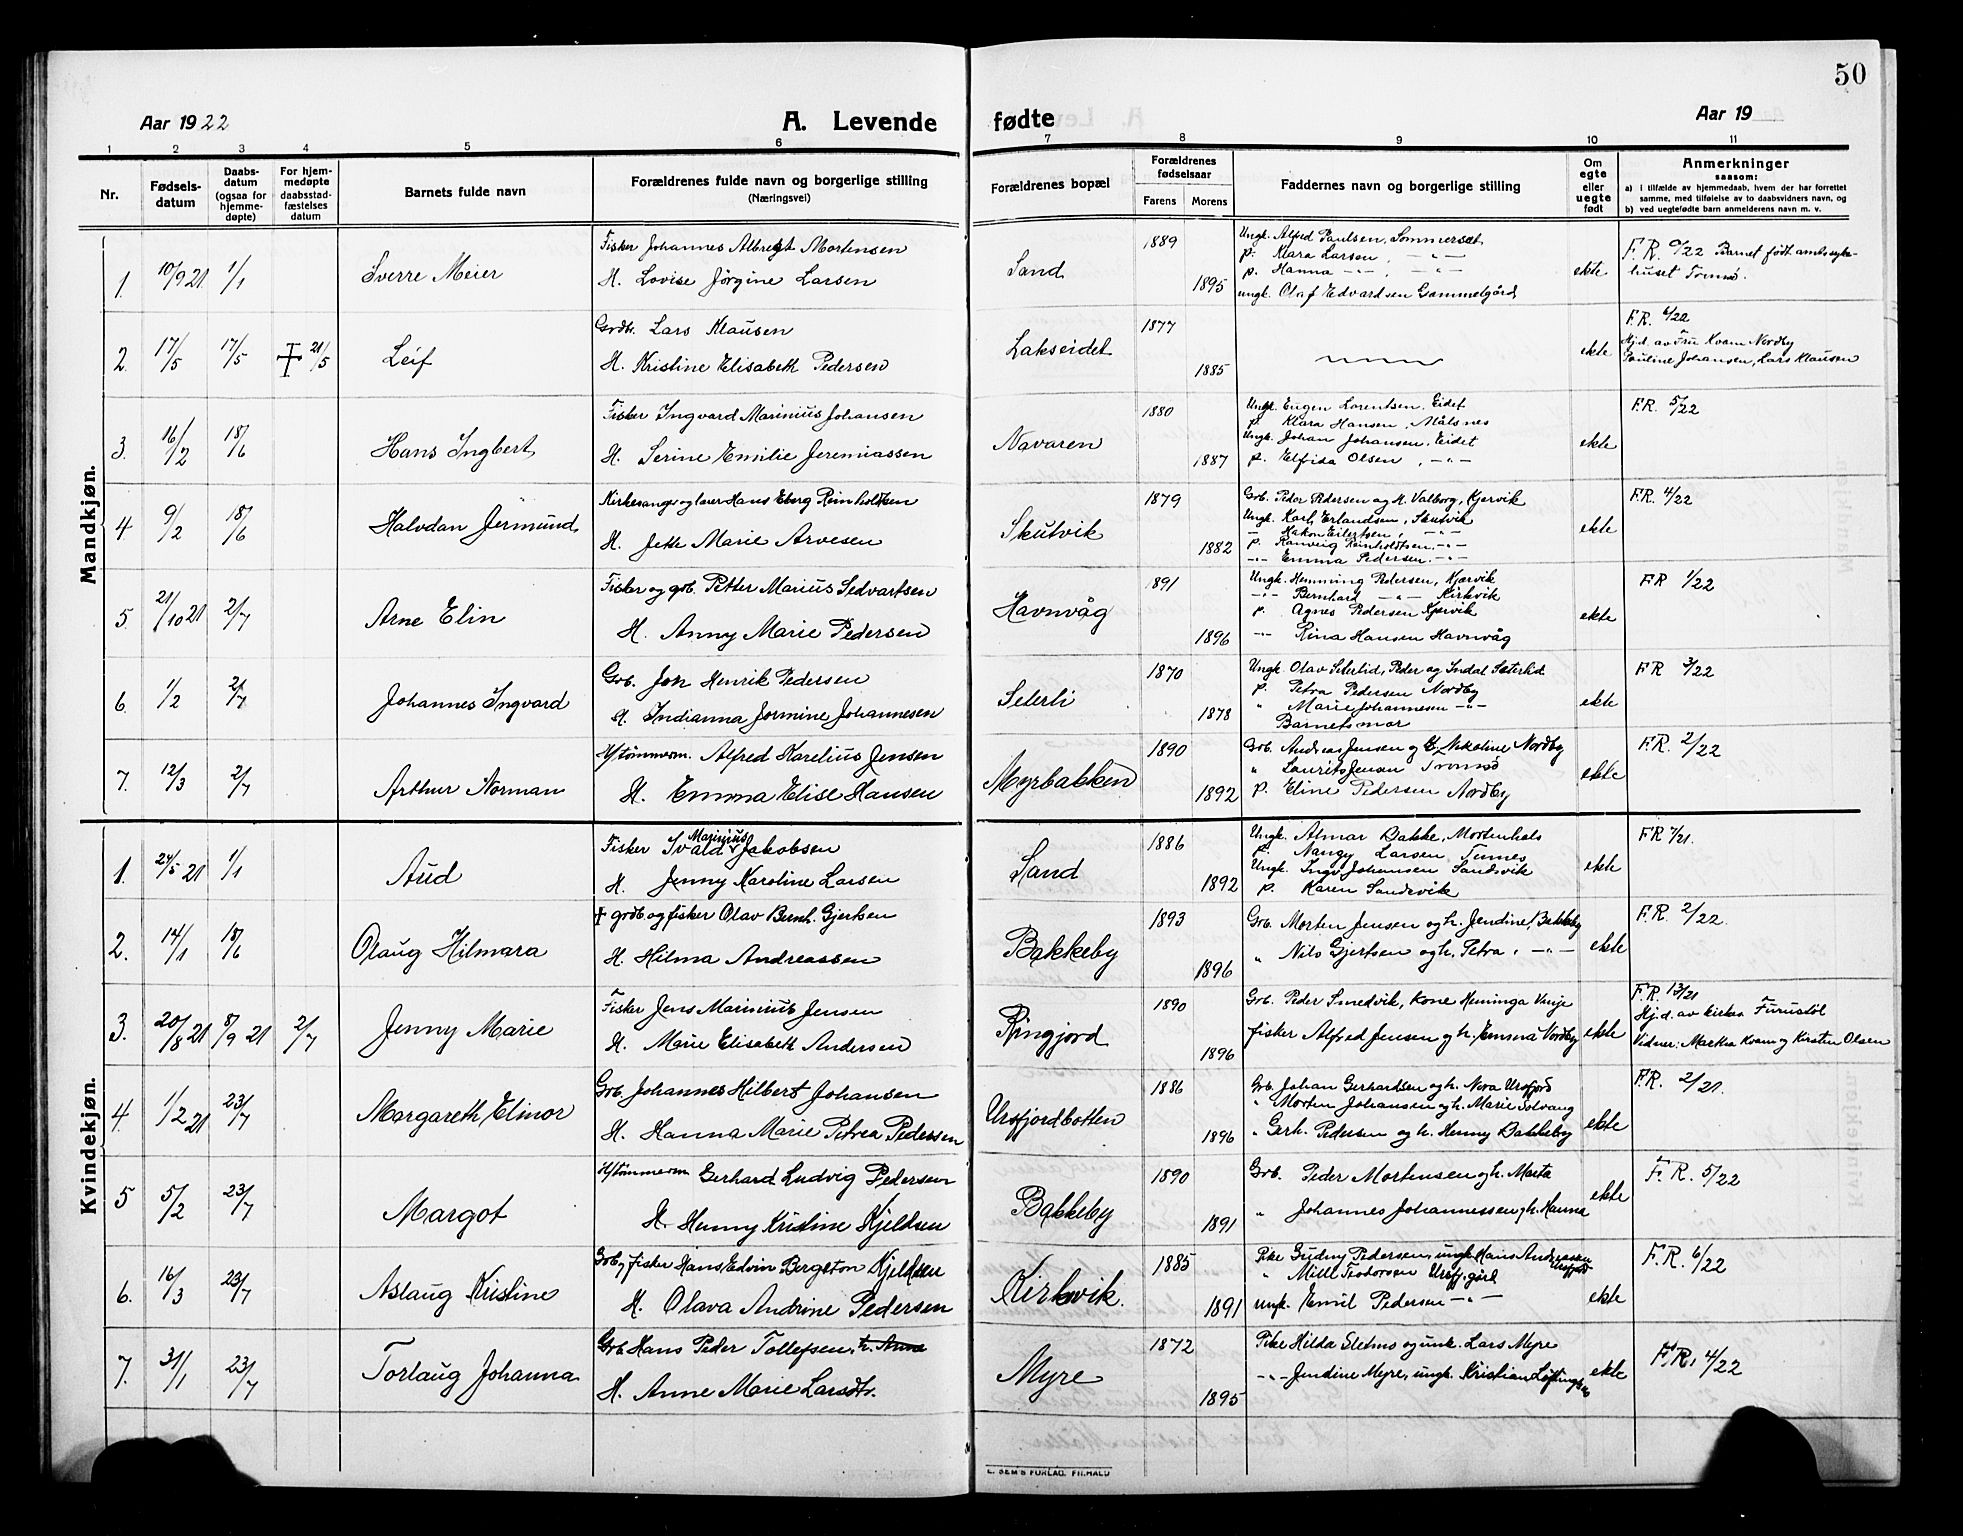 50
Aar 1922
A. Levende
fødte
Aar 19
1 2 3 4 5 6 7 8 9 10 11
Nr.
Fødsels-
datum
Daabs-
datum
(ogsaa for
hjemme-
døpte)
For hjem-
medøpte
daabsstad-
fæstelses
datum
Barnets fulde navn
Forældrenes fulde navn og borgerlige stilling
(Næringsvei)
Forældrenes bopæl
Forældrenes
fødselsaar
Farens Morens
Faddernes navn og borgerlige stilling
Om
egte
eller
uegte
født
Anmerkninger
saasom:
a) i tilfælde av hjemmedaab, hvem der har forrettet
samme, med tilføielse av to daabsvidners navn, og
b) ved uegtefødte barn anmelderens navn m. v.
Mandkjøn.
1. 10/9 21 1/1 Sverre Meier
Fisker Johannes Albregt Mortensen
H. Lovise Jørgine Larsen
Sand 1889 1895
Ungk. Alfred Paulsen, Sommerset
p. Klara Larsen, -"-
p. Hanna -"- , -"-
ungk. Olaf Edvardsen Gammelgård
ekte
F.R. /22 Barnet født amtssyke-
huset Tromsø.
2. 17/5 17/5 † 21/5 Leif
Grdbr. Lars Klausen
H. Kristine Elisabeth Pedersen
Lakseidet 1877 1885
ekte
F.R. 6/22
Hjd. av Fru Kvam Nordby
Pauline Johansen, Lars Klausen
3. 16/2 18/6 Hans Ingbert
Fisker Ingvard Marinius Johansen
H. Serine Emilie Jeremiassen
Navaren 1880 1887
Ungk. Eugen Lorentsen, Eidet
p. Klara Hansen, Målsnes
Ungk. Johan Johansen, Eidet
p. Elfrida Olsen, -"-
ekte
F.R. 5/22
4 9/2 18/6 Halvdan Jermund
Kirkesanger og lærer Hans Eberg Reinholdtsen
H. Jette Marie Arvesen
Skutvik 1879 1882
Grb. Peder Pedersen og H. Valborg, Kjervik
Ungk. Karl Erlandsen, Skutvik
- Håkon Eilertsen, -"-
p. Ranveig Reinholdtsen, -"-
-"- Emma Pedersen. -"-
ekte
F.R. 4/22
5 21/10 21 2/7 Arne Elin
Fisker og grb. Petter Marius Sedvartsen
H. Anny Marie Pedersen
Havnvåg 1891 1896
Ungk. Hemming Pedersen, Kjærvik
-"- Bernhard -"- Kirkvik
p. Agnes Pedersen Kjervik
-"- Rina Hansen Havnvåg
ekte
F.R 1/22
6. 1/2 2/7 Johannes Ingvard
Grb. Joh Henrik Pedersen
H. Indianna Jormine Johannesen
Seterli 1870 1878
Ungk. Olav Seterlid, Peder og Indal Sæterlid
p. Petra Pedersen Nordby
" Marie Johannesen -"-
Barnets mor
ekte
F R 3/22
7. 12/3 2/7 Arthur Norman
H/tømmerm. Alfred Karelius Jensen
H. Emma Elise Hansen
Myrbakken 1890 1892
Grb. Andreas Jensen og h. Nikoline Nordby
" Laurits Jensen Tromsø
p. Eline Pedersen Nordby
ekte
F.R. 2/22
Kvindekjøn.
1. 24/5 21 1/1 Aud
Fisker Ivald Marinius Jakobsen
H. Jenny Karoline Larsen
Sand 1886 1892
Ungk. Almar Bakke, Mortenhals
p. Nangy Larsen Tennes
Ungk. Ingv. Johansen Sandsvik
p. Karen Sandsvik
ekte
F R 7/21.
2. 14/1 18/6 Olaug Hilmara
† grdb og fisker Olav Bernh. Gjertsen
H. Hilma Andreassen
Bakkeby 1893 1896
Grb. Morten Jensen og h. Jendine, Bakkeby
" Nils Gjertsen og h. Petra, -"-
ekte
F.R. 2/22.
3. 20/8 21 8/9 21 2/7 Jenny Marie
Fisker Jens Marinius Jensen
H. Marie Elisabeth Andersen
Ringjord 1890 1896
Grb. Peder Smedvik, kone Heminga Vinje
fisker Alfred Jensen og h. Emma Nordby
ekte
F.R. 13/21
Hj.d. av kirkes. Furustøl
Vidner: Martha Kvam og Kirsten Olsen
4. 1/2 21 23/7 Margareth Elinor
Grb. Johannes Hilbert Johansen
H. Hanna Marie Petrea Pedersen
Ursfjordbotten 1886 1896
Grb. Johan Gerhardsen og h. Nora Ursfjord
" Morten Johansen og h. Marie Solvang
" Gerh. Pedersen og h. Henny Bakkeby
ekte
F.R. 2/21.
5 5/2 23/7 Margot
H/tømmerm Gerhard Ludvig Pedersen
H. Henny Kristine Kjeldsen
Bakkeby 1890 1891
Grb. Peder Mortensen og h. Marta
" Johannes Johannessen og h. Hanna
ekte
F.R. 5/22
6. 16/3 23/7 Aslaug Kristine
Grb og fisker Hans Edvin Bergeton Kjeldsen
H. Olava Andrine Pedersen
Kirkvik. 1885 1891
Pike Gudny Pedersen, ungk Hans Andreassen
" Mille Teodorsen Ursfj. gård Ursfjord
ungk. Emil Pedersen -"-
ekte
F.R. 6/22
7. 31/1 23/7 Torlaug Johanna
Grb Hans Peder Tollefsen, h. Anna
H. Anne Marie Larsdtr.
Myre 1872 1895
Pike Hilda Sletmo og unk. Lars Myre
-"- Jendine Myre, ungk. Kristian
ekte
F.R. 4/22
E. SEM'S FORLAG, FR.HALD